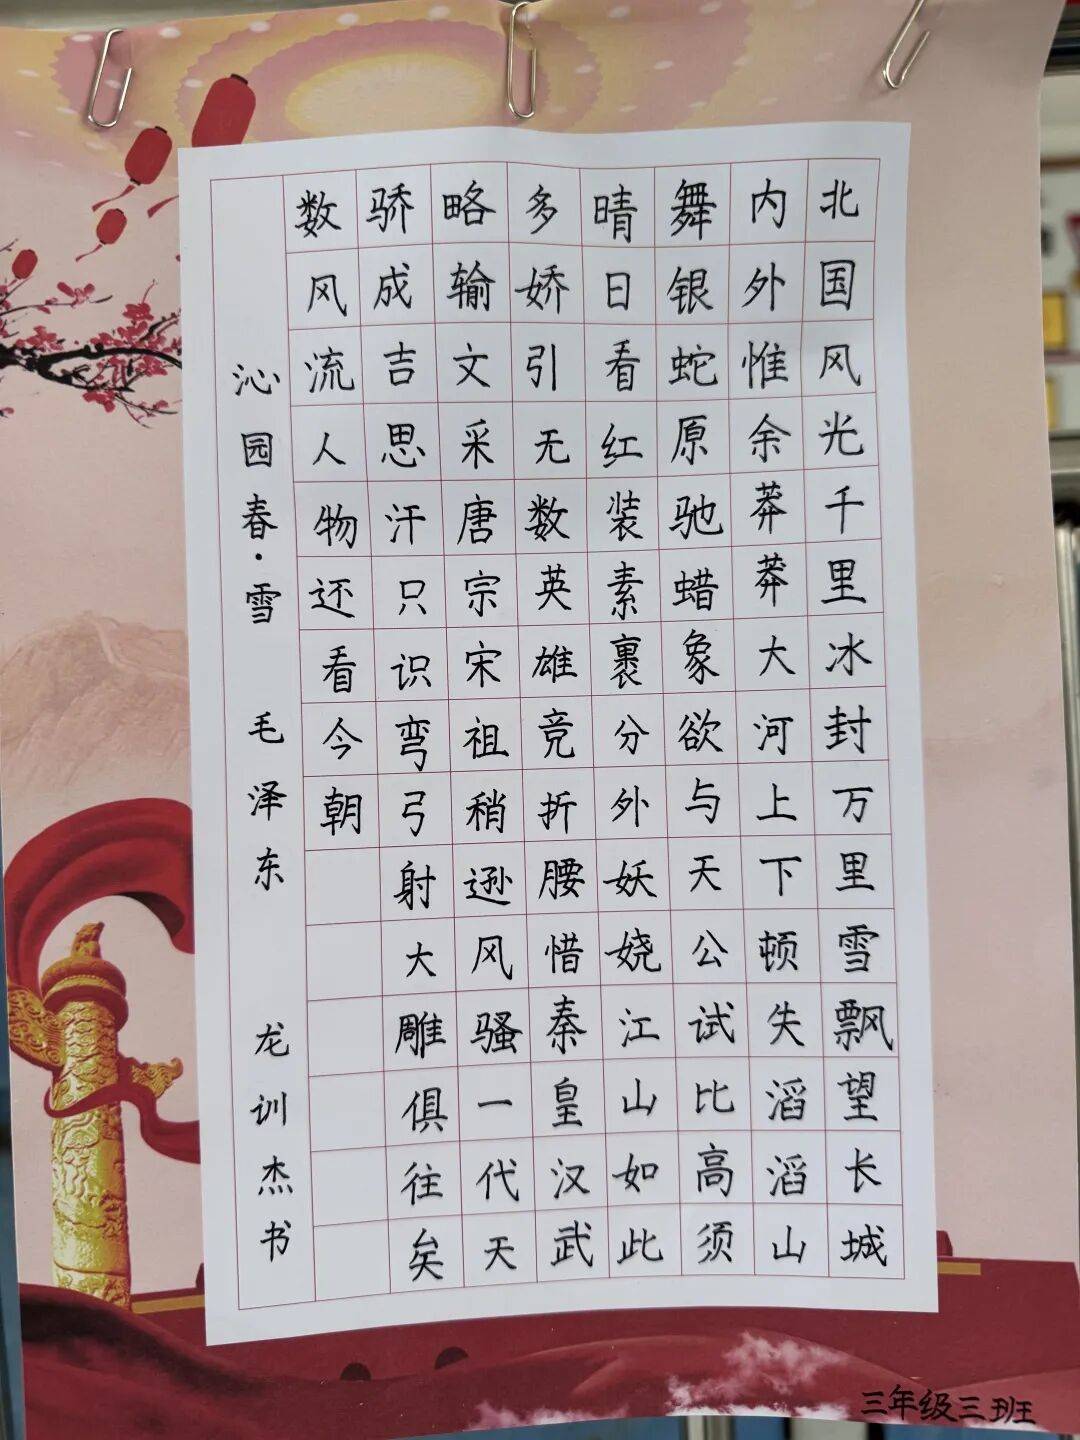 北国风光千里冰封万里雪飘望长城
内外惟余莽莽大河上下顿失滔滔山
舞银蛇原驰蜡象欲与天公试比高须
晴日看红装素裹分外妖娆江山如此
多娇引无数英雄竞折腰惜秦皇汉武
略输文采唐宗宋祖稍逊风骚一代天
骄成吉思汗只识弯弓射大雕俱往矣
数风流人物还看今朝
沁园春·雪 毛泽东 龙训杰书
三年级三班